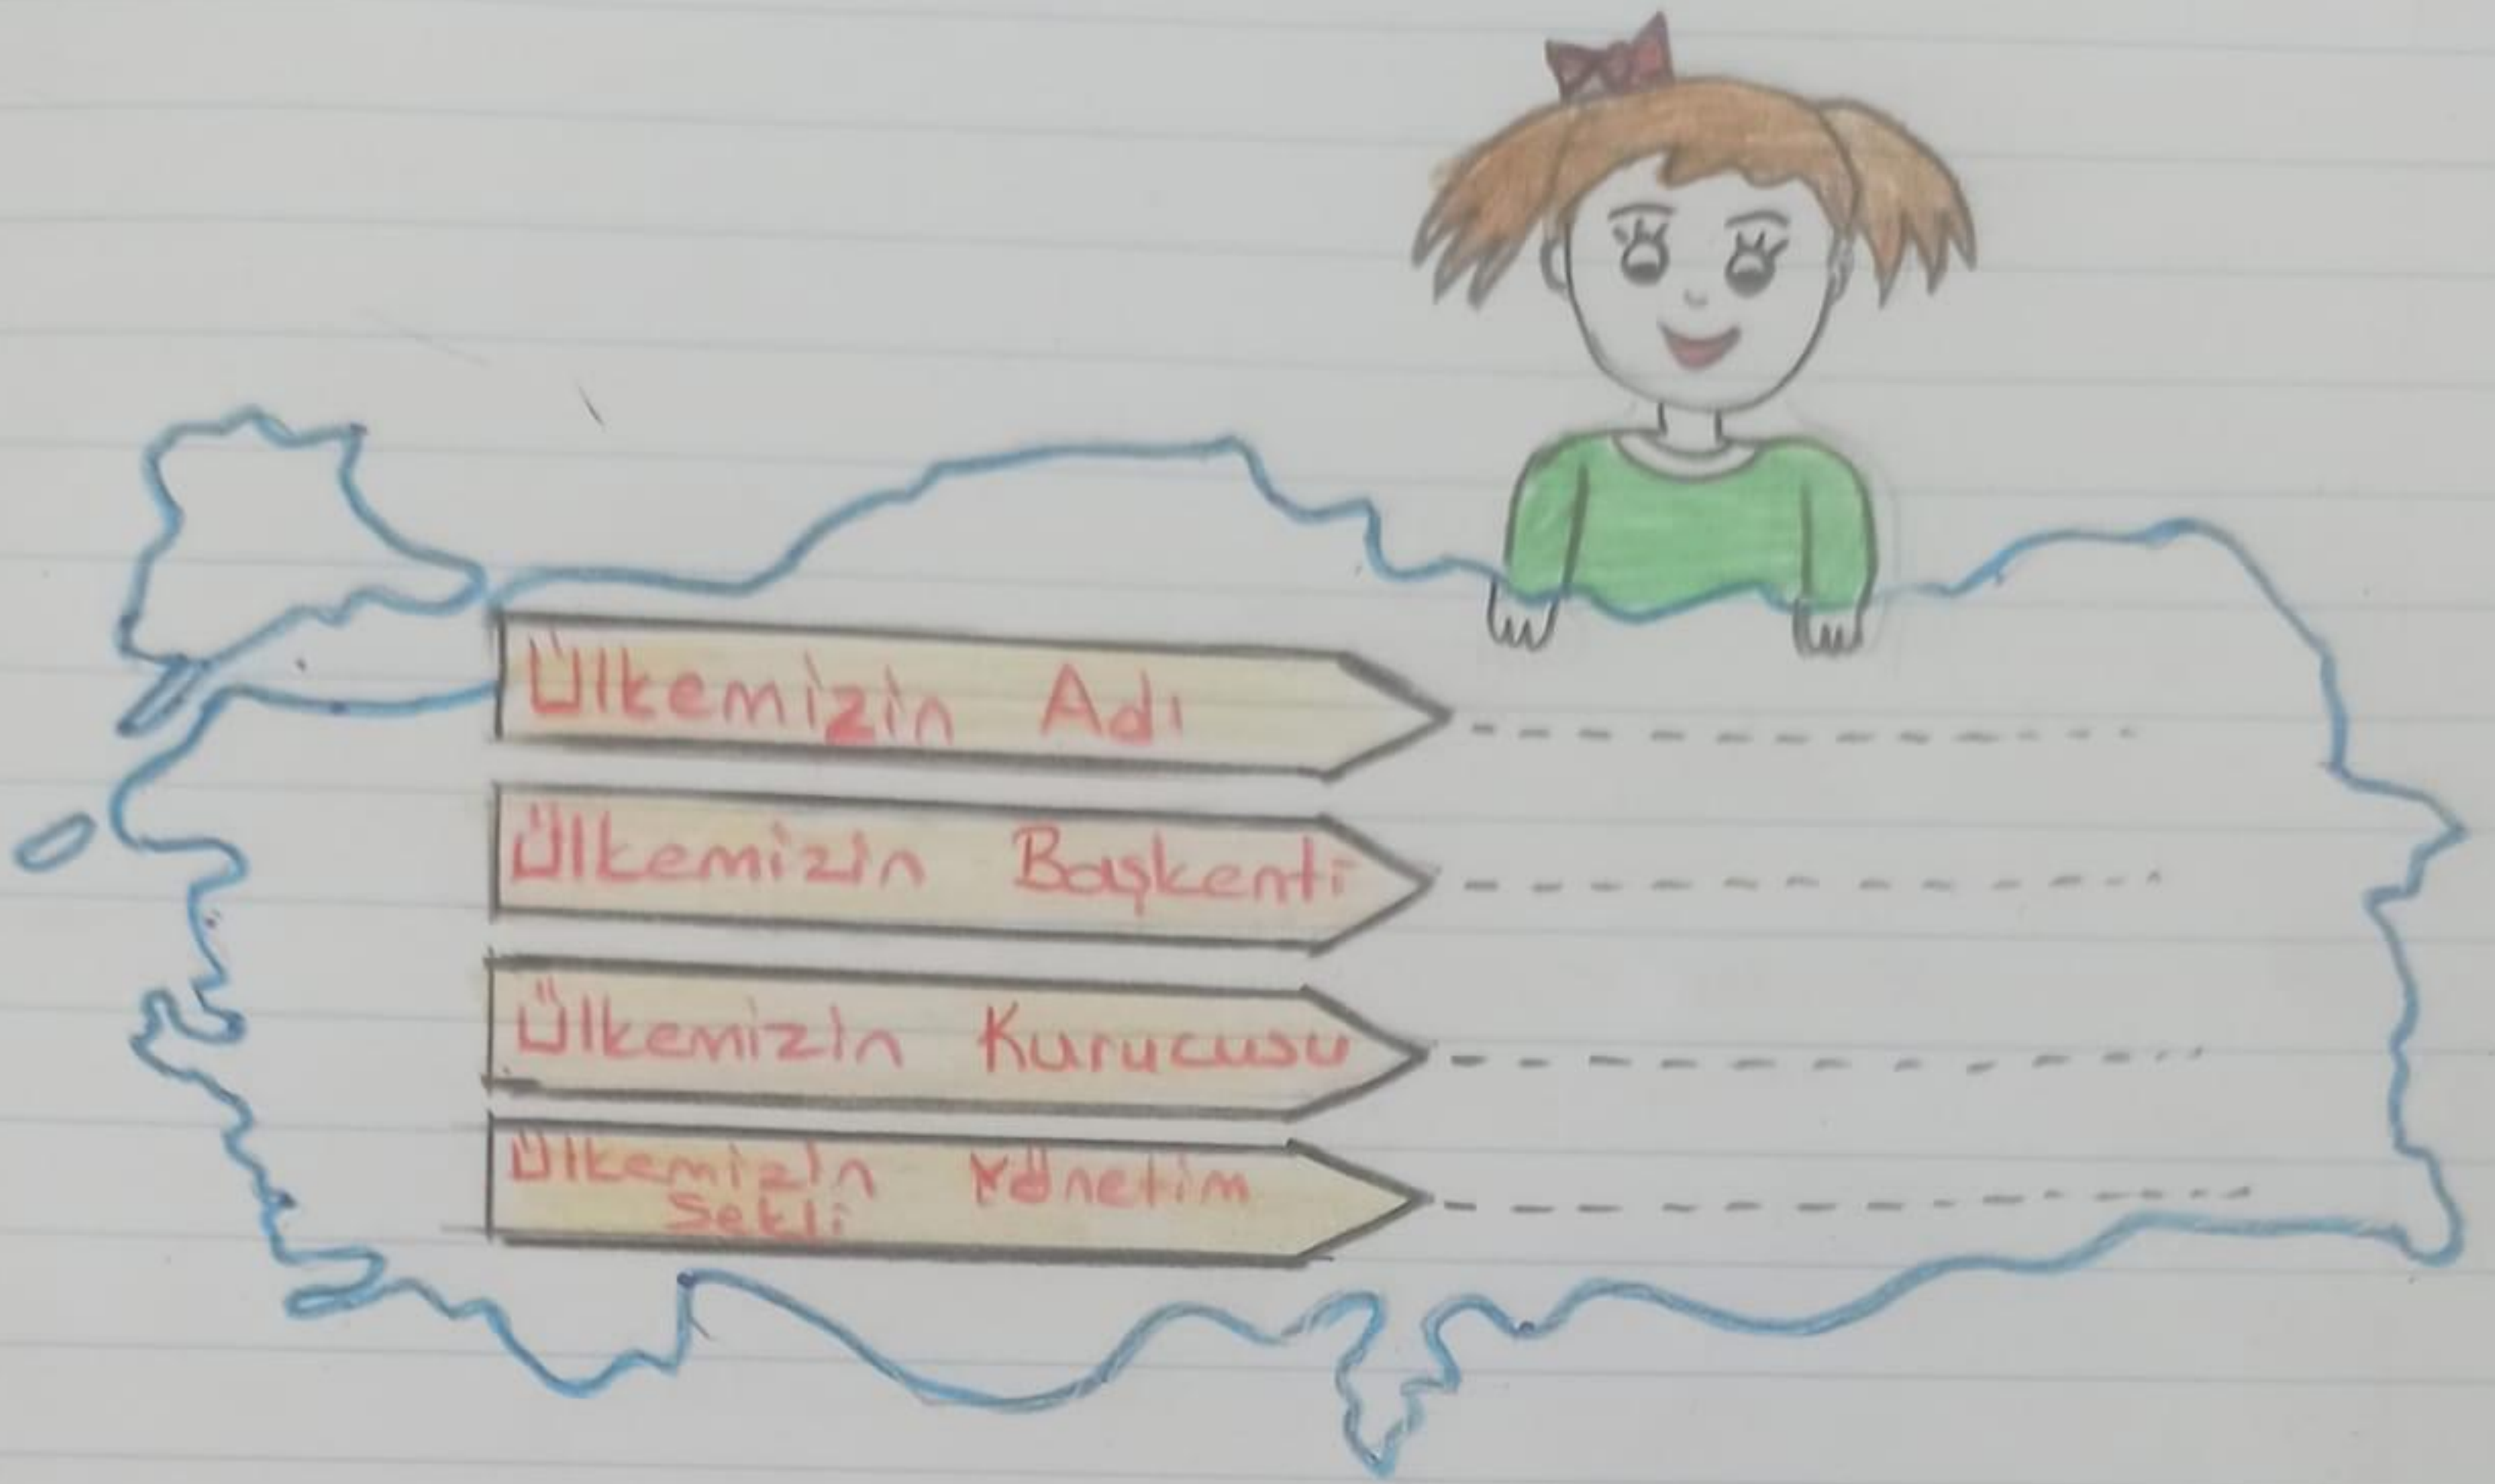 Ülkemizin Adı
Ülkemizin Başkenti
Ülkemizin Kurucusu
Ülkemizin Yönetim
Sekli